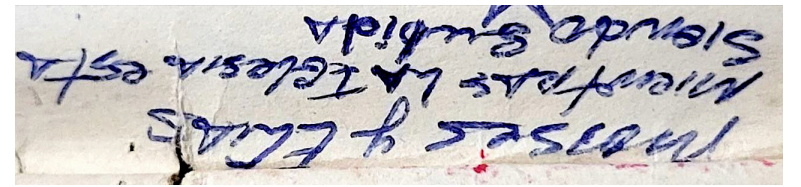 Moises y ELiAS
MieNtRAS LA IgLesiA esTA
SieNdo Subida